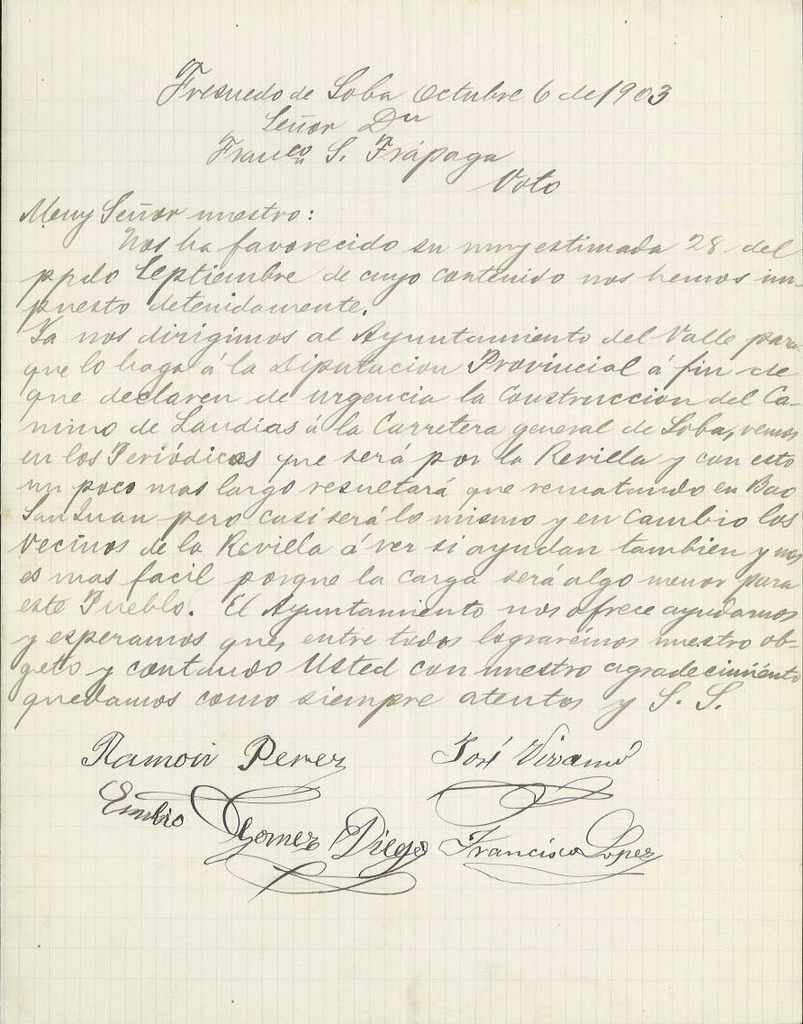 Fresnedo de Soba Octubre 6 de 1903
Señor Dn
Franco S. Trápaga
Voto
Muy Señor nuestro:
Nos ha favorecido su muy estimada 28 del
ppdo Septiembre de cuyo contenido nos hemos im-
puesto detenidamente.
Ya nos dirigimos al Ayuntamiento del Valle para
que lo haga á la Diputacion Provincial á fin de
que declaren de urgencia la Construccion del Ca-
mino de Landias á la Carretera general de Soba, vemos
en los Periódicos que será por la Revilla y con esto
un poco mas largo resultará que rematando en Bao
San Juan pero casi será lo mismo y en cambio los
Vecinos de la Revilla á ver si ayudan tambien y nos
es mas facil porque la carga será algo menor para
este Pueblo. El Ayuntamiento nos ofrece ayudarnos
y esperamos que, entre todos lograremos nuestro ob-
geto y contando Usted con nuestro agradecimiento
quedamos como siempre atentos y S. S.
Ramon Perez José
Gomez Diego Francisco Lopez